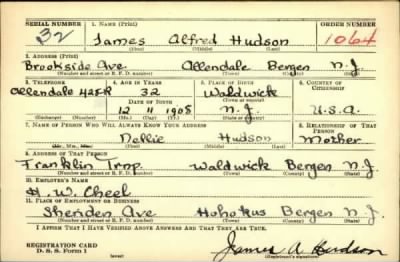 SERIAL NUMBER 1. NAME (Print) ORDER NUMBER
32 James Alfred Hudson 1064
(First) (Middle) (Last)
2. ADDRESS (Print)
Brookside Ave. Allendale Bergen N.J.
(Number and street or R. F. D. number) (Town) (County) (State)
3. TELEPHONE 4. AGE IN YEARS 5. PLACE OF BIRTH 6. COUNTRY OF CITIZENSHIP
Allendale 32 Waldwick
DATE OF BIRTH (Town or county)
12 11 1908 N.J. U.S.A.
(Exchange) (Number) (Mo.) (Day) (Yr.) (State or country)
7. NAME OF PERSON WHO WILL ALWAYS KNOW YOUR ADDRESS 8. RELATIONSHIP OF THAT PERSON
Nellie Hudson Mother
(Mr., Mrs., Miss) (First) (Middle) (Last)
9. ADDRESS OF THAT PERSON
Franklin Trnp. Waldwick Bergen N.J.
(Number and street or R. F. D. number) (Town) (County) (State)
10. EMPLOYER'S NAME
H. W. Cheel
11. PLACE OF EMPLOYMENT OR BUSINESS
Sheriden Ave Hohokus Bergen N.J.
(Number and street or R. F. D. number) (Town) (County) (State)
I AFFIRM THAT I HAVE VERIFIED ABOVE ANSWERS AND THAT THEY ARE TRUE.
REGISTRATION CARD
D. S. S. Form 1 James A Hudson
(Registrant's signature)